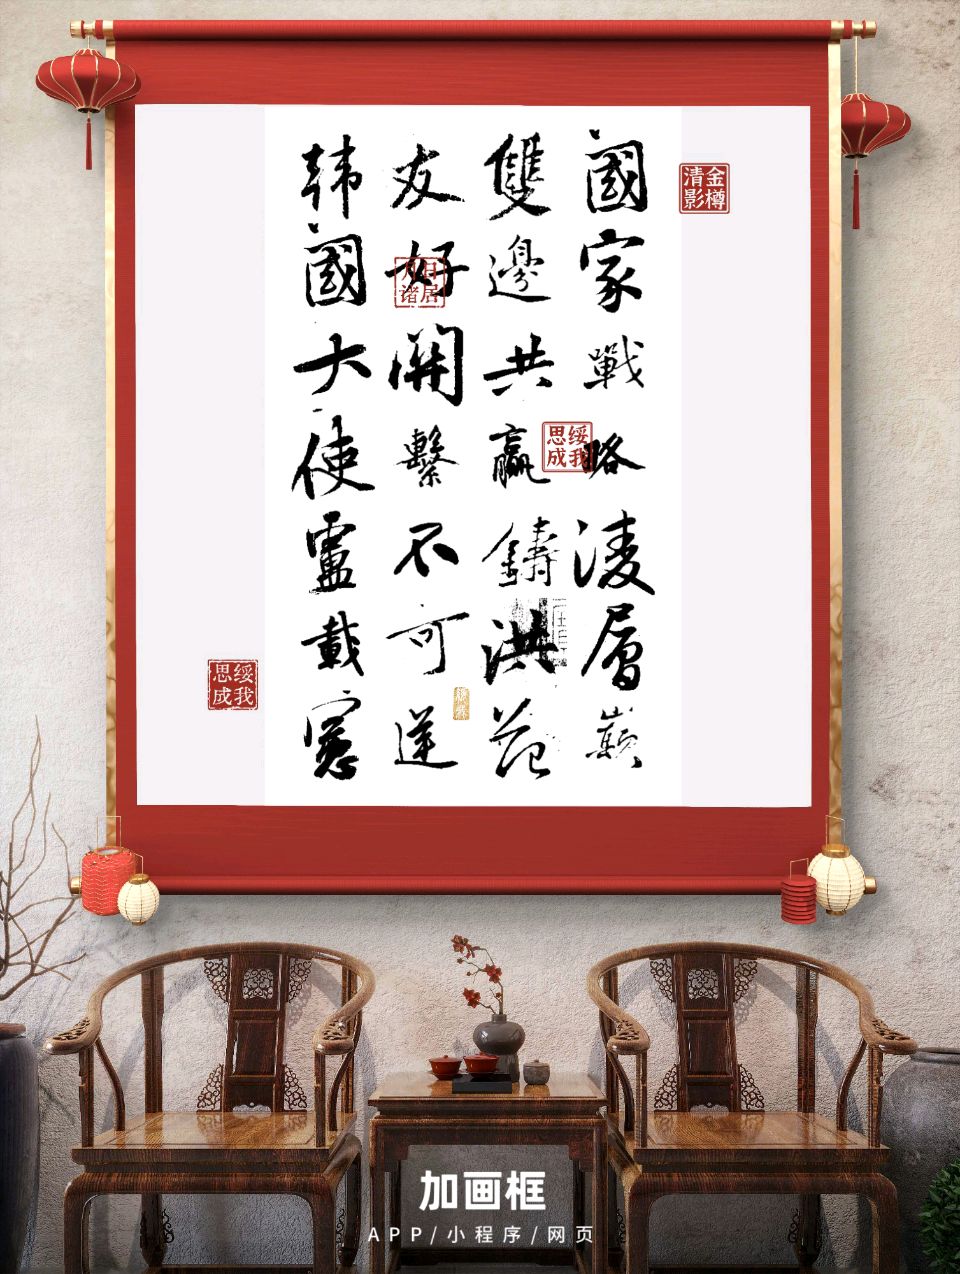 國家戰略凌層巔
雙邊共贏鑄洪范
友好關繫不可逆
韩國大使盧載憲
金樽清影
日居月诸
绥我思成
绥我思成
加画框
APP/小程序/网页